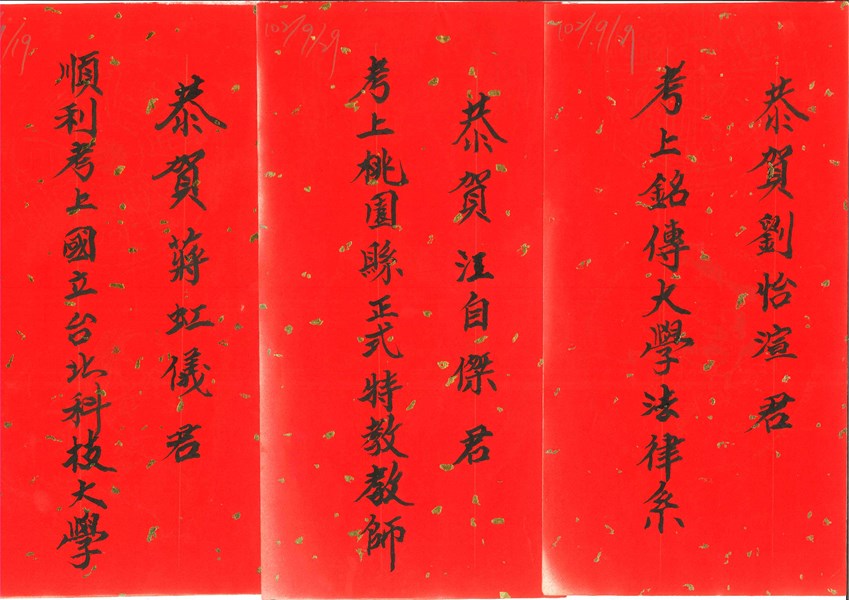 102/9/19
恭賀劉怡渲君
考上銘傳大學法律系
102/9/29
恭賀汪自傑君
考上桃園縣正式特教教師
恭賀蔣虹儀君
順利考上國立台北科技大學